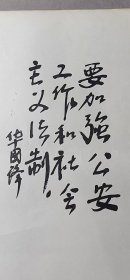 要加強公安
工作和社会
主义法制.
华國锋